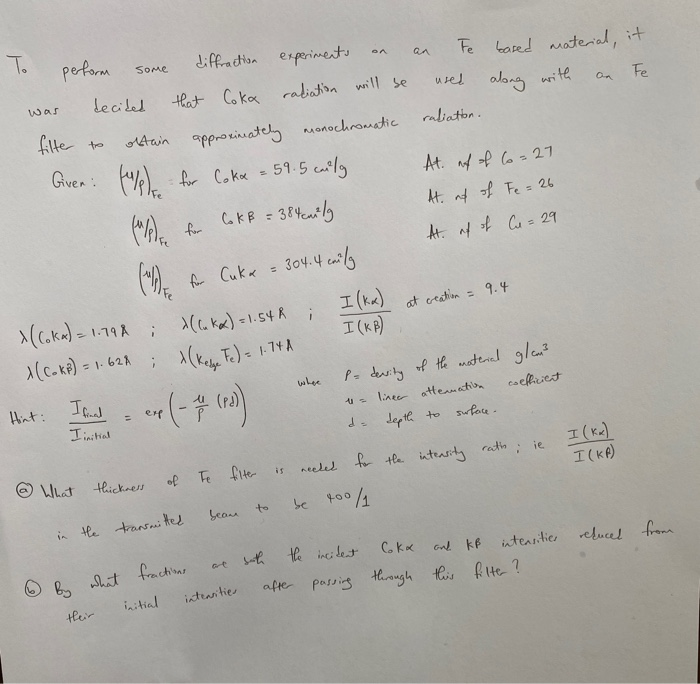 To perform some diffraction experiments on an Fe based material, it
was decided that CoKα radiation will be used along with an Fe
filter to obtain approximately monochromatic radiation.
Given: (μ/ρ)Fe for CoKα = 59.5 cm²/g At. nº of Co = 27
(μ/ρ)Fe for CoKβ = 384 cm²/g At. nº of Fe = 26
(μ/ρ)Fe for CuKα = 304.4 cm²/g At. nº of Cu = 29
λ(CoKα) = 1.79Å ; λ(CuKα) = 1.54Å ; I(Kα)/I(Kβ) at creation = 9.4
λ(CoKβ) = 1.62Å ; λ(Kedge Fe) = 1.74Å
Hint: Ifinal/Iinitial = exp(-μ/ρ (ρd)) where ρ = density of the material g/cm³
μ = linear attenuation coefficient
d = depth to surface.
(a) What thickness of Fe filter is needed for the intensity ratio; ie I(Kα)/I(Kβ)
in the transmitted beam to be 400/1
(b) By what fractions are both the incident CoKα and Kβ intensities reduced from
their initial intensities after passing through this filter?